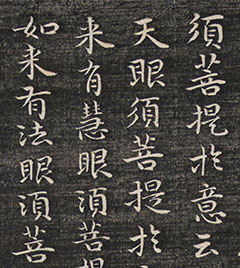 須菩提於意云
天眼須菩提於
来有慧眼須菩提
如来有法眼須菩